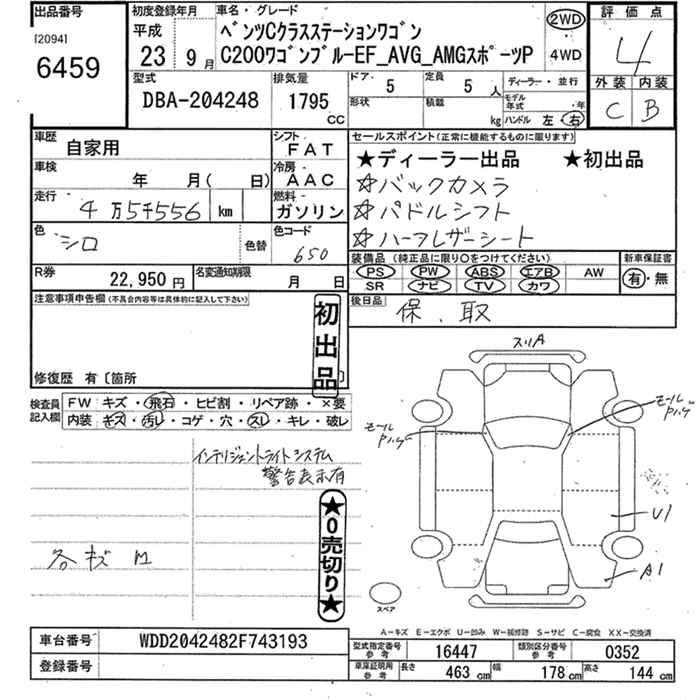 出品番号
[2094]
6459
初度登録年月
平成
23 9 月
車名・グレード
ベンツCクラスステーションワゴン
C200ワゴンブルーEF_AVG_AMGスポーツP
2WD
4WD
評価点
4
外装 内装
C B
型式
DBA-204248
排気量
1795
CC
ドア・
5
定員
5 人
形状
積載
kg
ディーラー・並行
モデル年式 ・年
ハンドル 左・右
車歴
自家用
シフト
FAT
車検
年 月( 日)
冷房
AAC
走行
4万5千556 km
燃料
ガソリン
色
シロ
色替
色コード
650
R券
22,950 円
名変通知期限
月 日
セールスポイント(正常に機能するものに限ります)
★ディーラー出品 ★初出品
☆バックカメラ
☆パドルシフト
☆ハーフレザーシート
装備品 (純正品に限り○をつけてください)
PS PW ABS エアB AW
SR ナビ TV カワ
新車保証書
有・無
後日品
保、取
注意事項申告欄(不具合内容等は具体的に記入して下さい)
初出品
修復歴 有〔箇所
検査員
記入欄
FW キズ・飛石・ヒビ割・リペア跡・×要
内装 キズ・汚レ・コゲ・穴・スレ・キレ・破レ
インテリジェントライトシステム
警告表示有
★0売切り★
スリA
モール
モール
U1
A1
スペア
A-キズ E-エクボ U-凹み W-補修跡 S-サビ C-腐食 XX-交換済
車台番号
WDD2042482F743193
登録番号
型式指定番号
参考
16447
類別区分番号
参考
0352
車庫証明用
参考
長さ
463 cm
幅
178 cm
高さ
144 cm